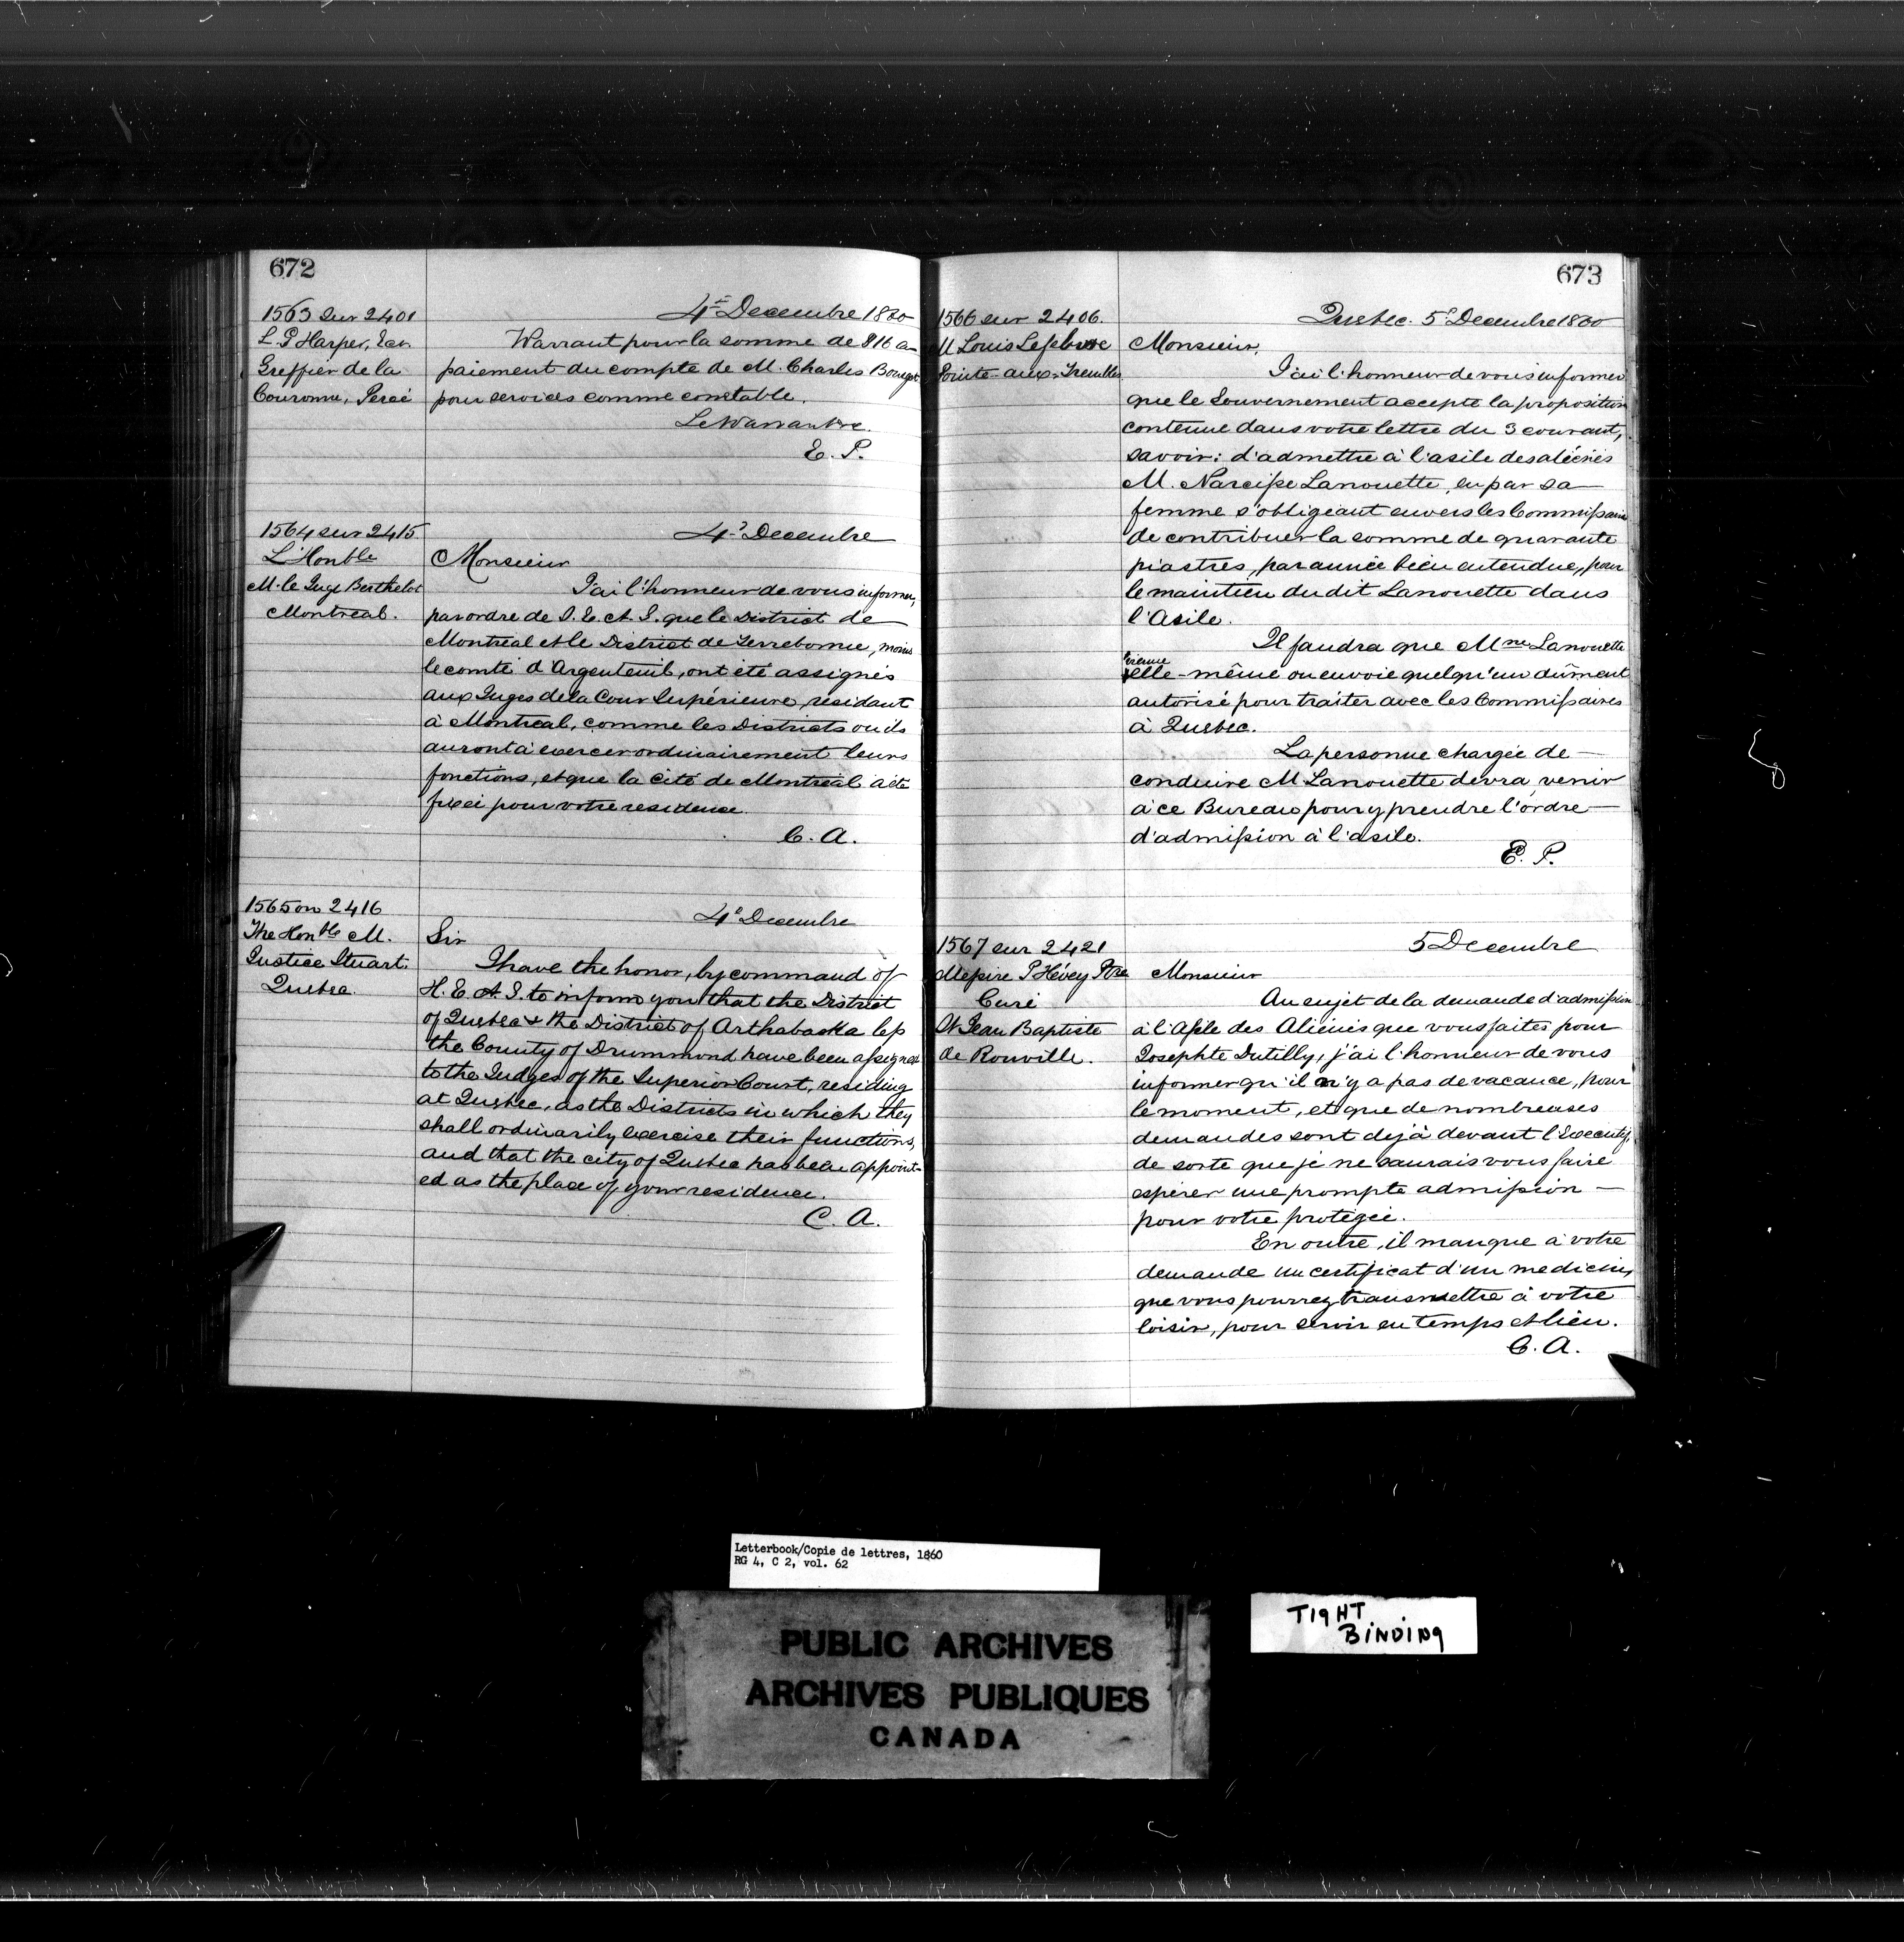 672
1563 sur 2401
L. P Harper, Ecr
Greffier de la
Couronne, Percé
4e Decembre 1860
Warrant pour la somme de $16 en
paiement du compte de M. Charles
pour services comme constable.
E. P.
1564 sur 2415
L'Honble
M. le Juge Berthelot
Montreal.
4e Decembre
Monsieur
J'ai l'honneur de vous informer,
par ordre de S. E. A. G. que le District de
Montreal et le District de Terrebonne, moins
le comté d'Argenteuil, ont été assignés
aux Juges de la Cour Supérieure, residant
à Montreal, comme les Districts ou ils
auront à exercer ordinairement leurs
fonctions, et que la cité de Montreal a été
fixée pour votre residence.
C. A.
1565 on 2416
The Honble M.
Justice Stuart.
Quebec.
4e Decembre
Sir
I have the honor, by command of
H. E. A. G. to inform you that the District
of Quebec & the District of Arthabaska less
the County of Drummond have been assigned
to the Judges of the Superior Court, residing
at Quebec, as the Districts in which they
shall ordinarily exercise their functions,
and that the city of Quebec has been appoint-
ed as the place of your residence.
C. A.
673
1566 sur 2406.
M Louis Lefebvre
Pointe-aux-Trembles
Quebec. 5e Decembre 1860
Monsieur,
J'ai l'honneur de vous informer
que le Gouvernement accepte la proposition
contenue dans votre lettre du 3 courant,
savoir: d'admettre à l'asile des aliénés
M. Narcisse Lanouette, en par sa
femme s'obligeant envers les Commissaires
de contribuer la somme de quarante
piastres, par année bien entendue, pour
le maintien du dit Lanouette dans
l'Asile.
Il faudra que Mme Lanouette
vienne
elle-même ou envoie quelqu'un dûment
autorisé pour traiter avec les Commissaires
à Quebec.
La personne chargée de
conduire M Lanouette devra venir
à ce Bureau pour y prendre l'ordre
d'admission à l'asile.
E. P.
1567 sur 2421
Messire P Hévey Ptre
Curé
St Jean Baptiste
de Rouville.
5 Decembre
Monsieur
Au sujet de la demande d'admission
à l'Asile des Aliénés que vous faites pour
Josephte Dutilly, j'ai l'honneur de vous
informer qu'il n'y a pas de vacance, pour
le moment, et que de nombreuses
demandes sont dejà devant l'Executif,
de sorte que je ne saurais vous faire
espérer une prompte admission
pour votre protégée.
En outre, il manque à votre
demande un certificat d'un medecin,
que vous pourrez transmettre à votre
loisir, pour servir en temps et lieu.
C. A.
Letterbook/Copie de lettres, 1860
RG 4, C 2, vol. 62
PUBLIC ARCHIVES
ARCHIVES PUBLIQUES
CANADA
TIGHT
BINDING